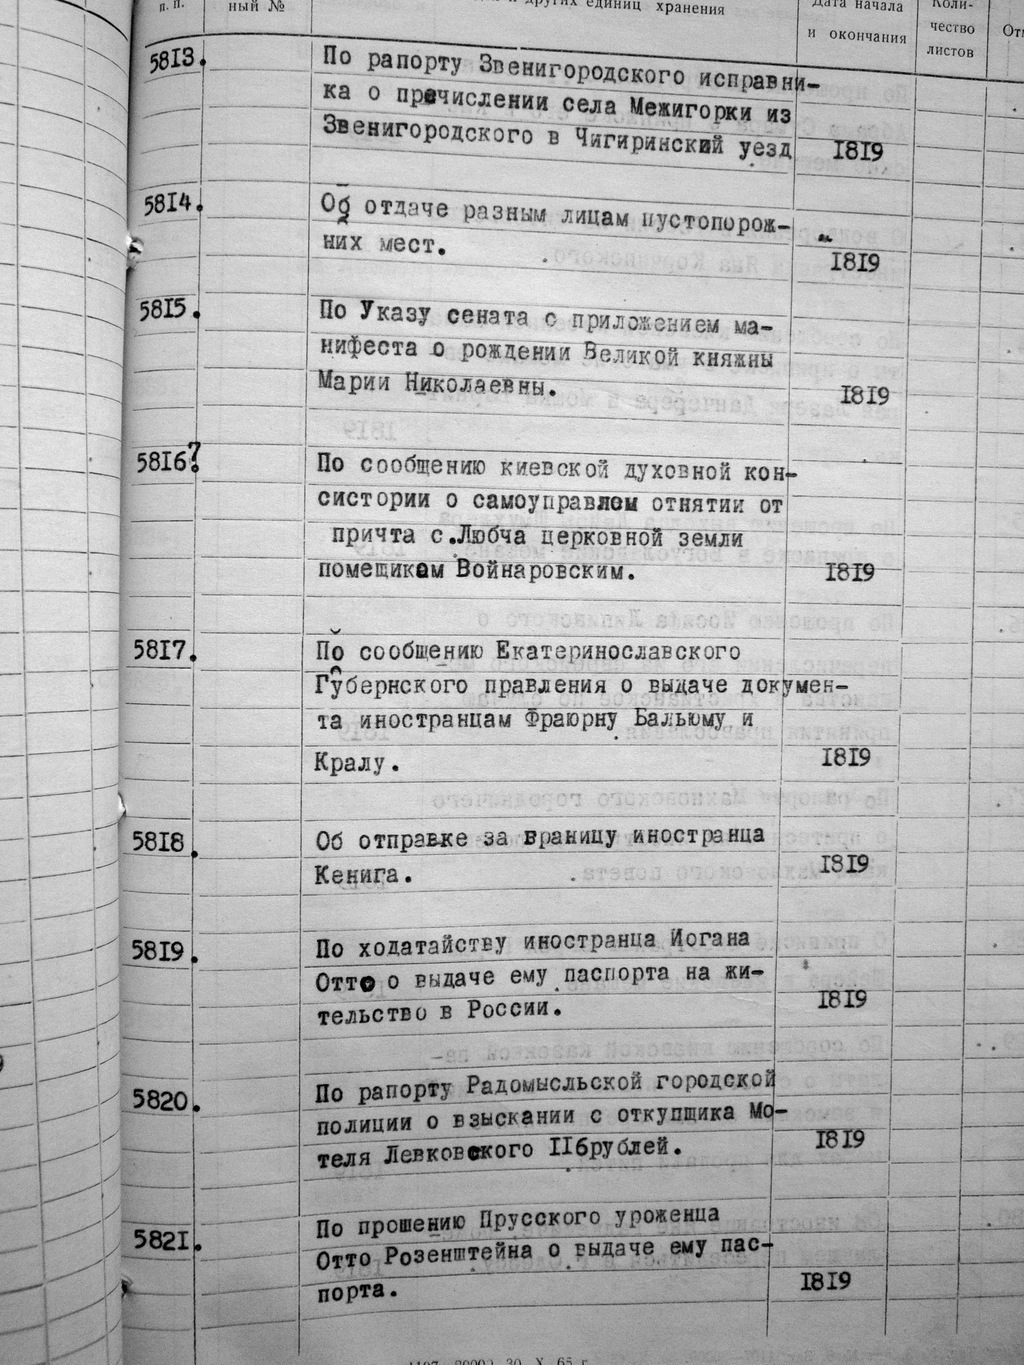 п. п.
ный №
и других единиц хранения
Дата начала
и окончания
Коли-
чество
листов
5813.
По рапорту Звенигородского исправни-
ка о пречислении села Межигорки из
Звенигородского в Чигиринский уезд
1819
5814.
Об отдаче разным лицам пустопорож-
них мест.
1819
5815.
По Указу сената с приложением ма-
нифеста о рождении Великой княжны
Марии Николаевны.
1819
5816?
По сообщению киевской духовной кон-
систории о самоуправлом отнятии от
причта с.Любча церковной земли
помещикам Войнаровским.
1819
5817.
По сообщению Екатеринославского
Губернского правления о выдаче докумен-
та иностранцам Фраюрну Бальюму и
Кралу.
1819
5818.
Об отправке за враницу иностранца
Кенига.
1819
5819.
По ходатайству иностранца Иогана
Отто о выдаче ему паспорта на жи-
тельство в России.
1819
5820.
По рапорту Радомысльской городской
полиции о взыскании с откупщика Мо-
теля Левковского 116рублей.
1819
5821.
По прошению Прусского уроженца
Отто Розенштейна о выдаче ему пас-
порта.
1819